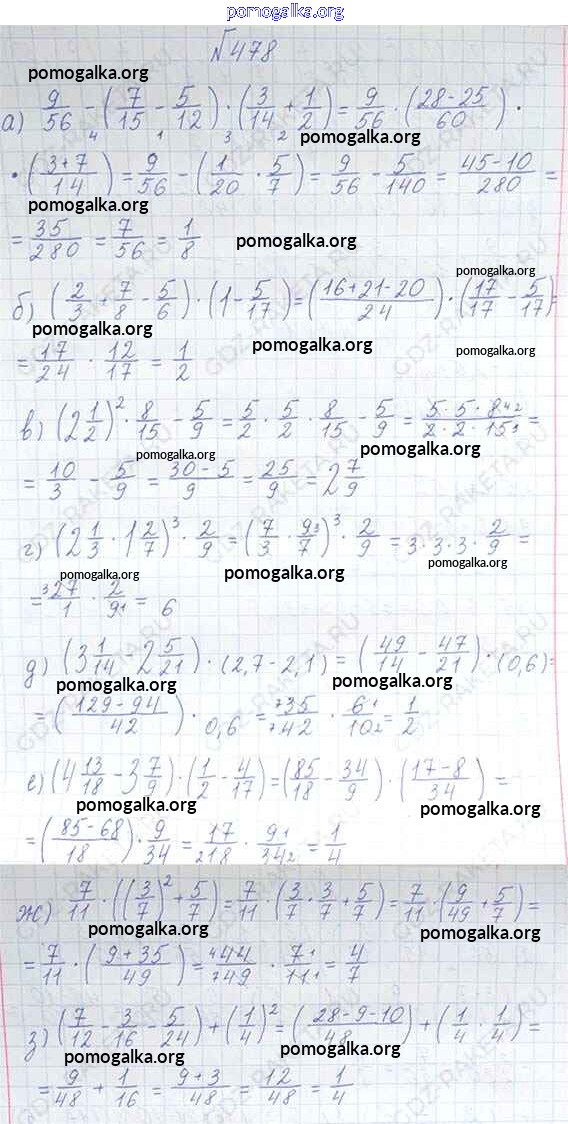 pomogalka.org
№478
pomogalka.org
а) 9/56 - (7/15 - 5/12) · (3/14 + 1/2) = 9/56 · (28-25/60) ·
4 1 3 2
pomogalka.org
· (3+7/14) = 9/56 - (1/20 · 5/7) = 9/56 - 5/140 = 45-10/280 =
pomogalka.org pomogalka.org
= 35/280 = 7/56 = 1/8
pomogalka.org
pomogalka.org
б) (2/3 + 7/8 - 5/6) · (1 - 5/17) = (16+21-20/24) · (17/17 - 5/17) =
pomogalka.org
= 17/24 · 12/17 = 1/2
pomogalka.org pomogalka.org
в) (2 1/2)² · 8/15 - 5/9 = 5/2 · 5/2 · 8/15 - 5/9 = 5·5·8 4 2/2·2·15 3 =
pomogalka.org pomogalka.org
= 10/3 - 5/9 = 30-5/9 = 25/9 = 2 7/9
pomogalka.org
г) (2 1/3 · 1 2/7)³ · 2/9 = (7/3 · 9 3/7)³ · 2/9 = 3·3·3 · 2/9 =
pomogalka.org pomogalka.org pomogalka.org
= 3 27/1 · 2/9 1 = 6
д) (3 1/14 - 2 5/21) · (2,7 - 2,1) = (49/14 - 47/21) · (0,6) =
pomogalka.org pomogalka.org
= (129-94/42) · 0,6 = 7 35/7 42 · 6 1/10 2 = 1/2
pomogalka.org
е) (4 13/18 - 3 7/9) · (1/2 - 4/17) = (85/18 - 34/9) · (17-8/34) =
pomogalka.org pomogalka.org
= (85-68/18) · 9/34 = 17/2 18 · 9 1/34 2 = 1/4
ж) 7/11 · ((3/7)² + 5/7) = 7/11 · (3/7 · 3/7 + 5/7) = 7/11 · (9/49 + 5/7) =
pomogalka.org pomogalka.org
= 7/11 · (9+35/49) = 4 44/7 49 · 7 1/11 1 = 4/7
з) (7/12 - 3/16 - 5/24) + (1/4)² = (28-9-10/48) + (1/4 · 1/4) =
pomogalka.org pomogalka.org
= 9/48 + 1/16 = 9+3/48 = 12/48 = 1/4